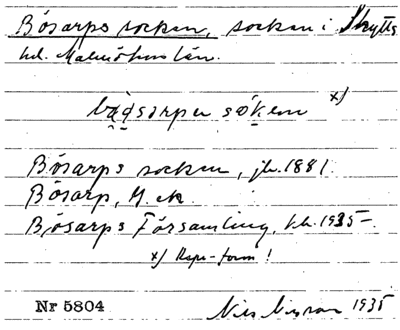 Bösarps socken, socken i Skytts
hd. Malmöhus län.
söken x)
Bösarps socken, jb. 1881.
Bösarp, G. ek.
Bösarps Församling, kb. 1935
x) Repr-form!
Nr 5804
Nils 1935